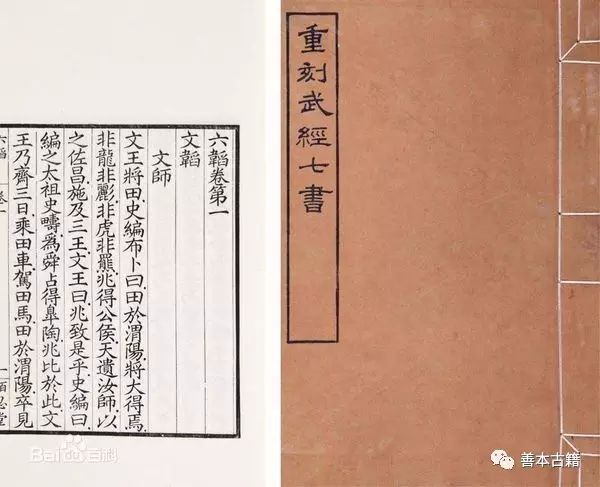 重刻武經七書
六韜卷第一
文韜
文師
文王將田史編布卜曰田於渭陽將大得焉
非龍非彲非虎非羆兆得公侯天遺汝師以
之佐昌施及三王文王曰兆致是乎史編曰
編之太祖史疇爲舜占得臯陶兆比於此文
王乃齊三日乘田車駕田馬田於渭陽卒見
Bai百科
善本古籍